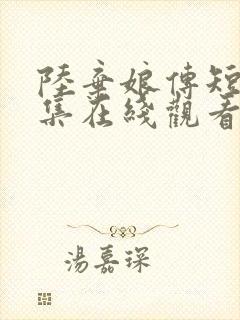 陸棄娘傳短
集在綫觀看
湯嘉琛